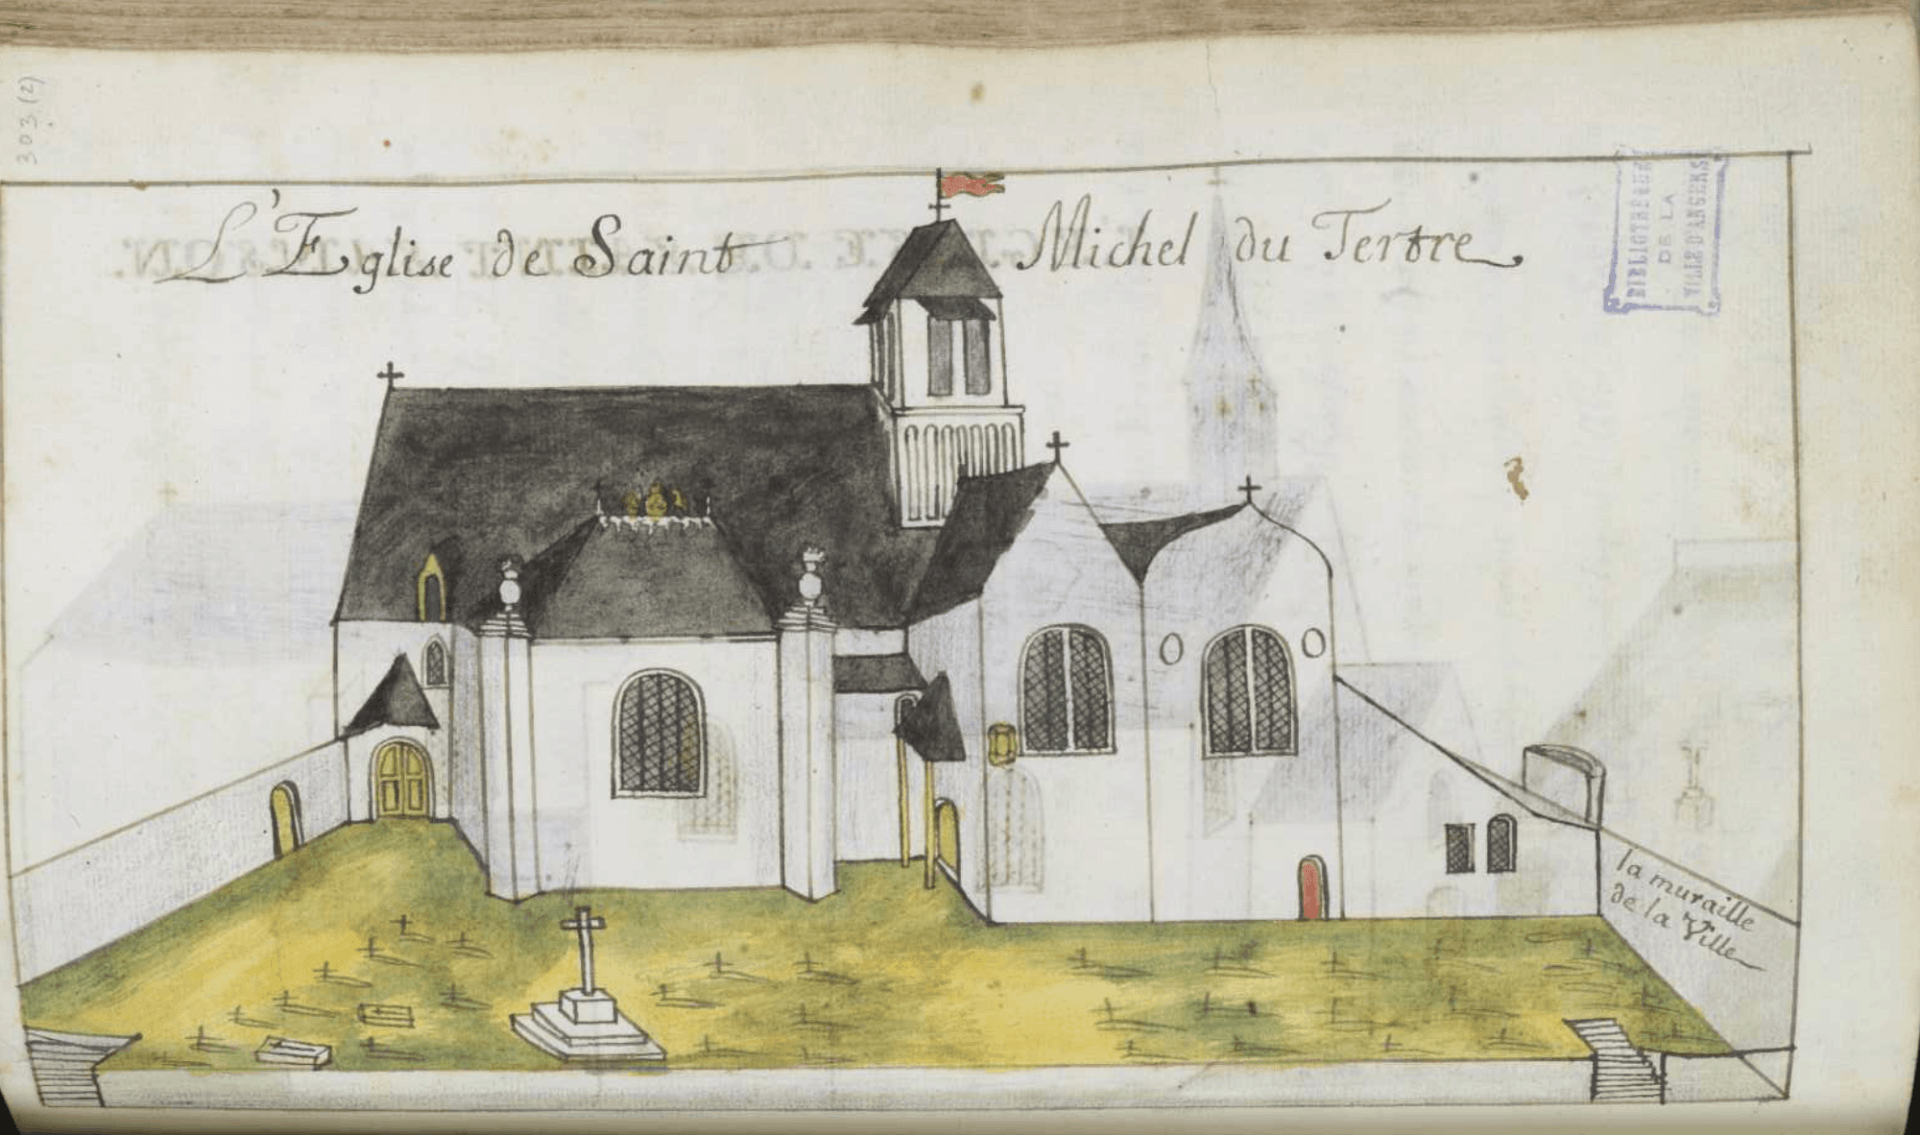 303 (2)
L'Eglise de Saint Michel du Tertre.
BIBLIOTHEQUE
DE LA
VILLE D'ANGERS
la muraille
de la Ville